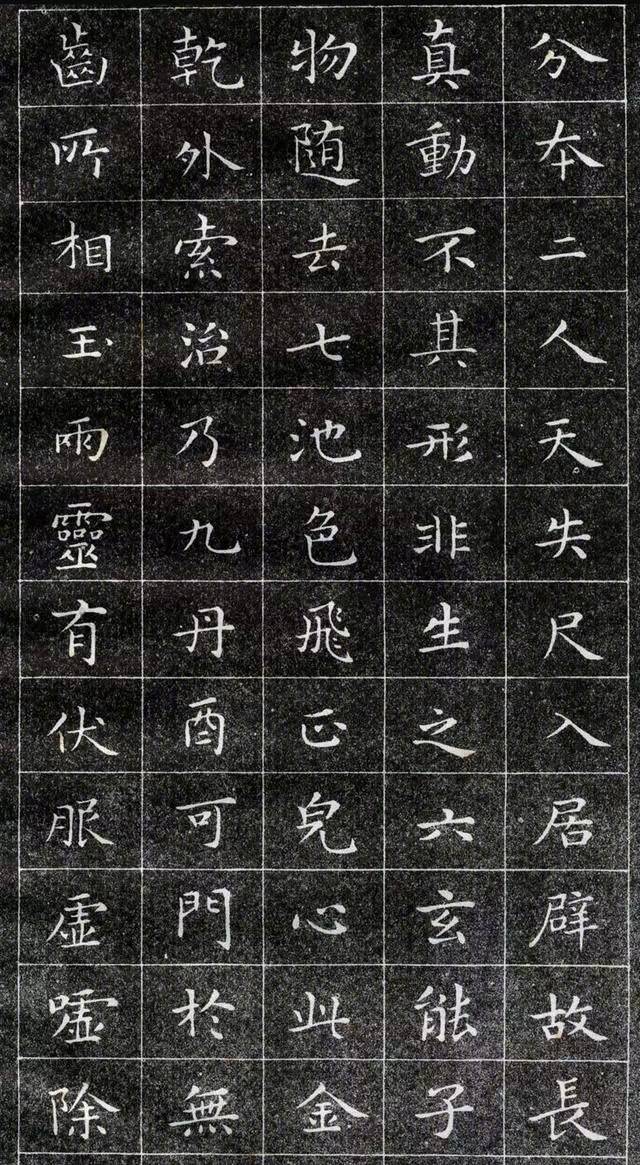 分本二人天失尺入居辟故長
真動不其形非生之六玄能子
物随去七池色飛正兒心此金
乾外索治乃九丹酉可門於無
齒所相玉雨靈有伏服虚嘘除